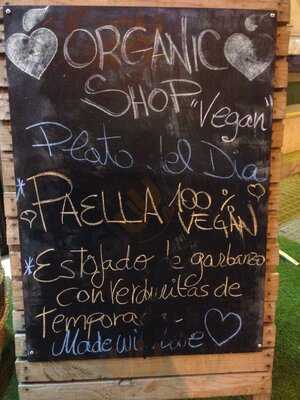 ORGANIC
SHOP "Vegan"
Plato del Dia
* PAELLA 100%
VEGAN
* Estofado de garbanzo
con verduritas de
temporada
Made with love